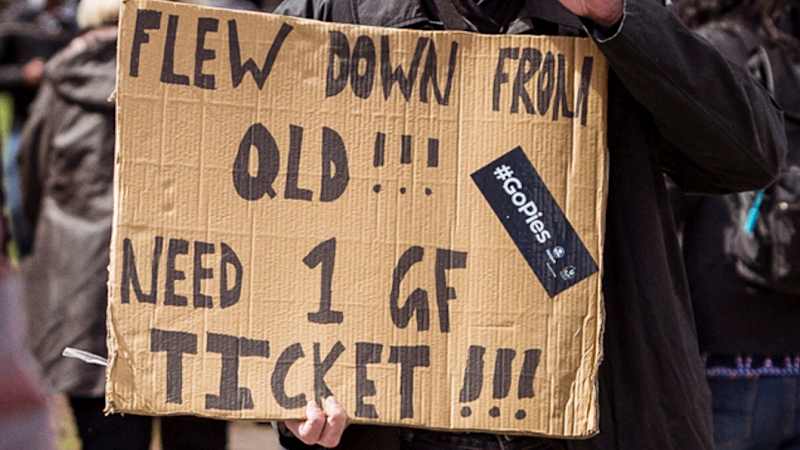 FLEW DOWN FROM
QLD!!!
#GoPies
NEED 1 GF
TICKET!!!